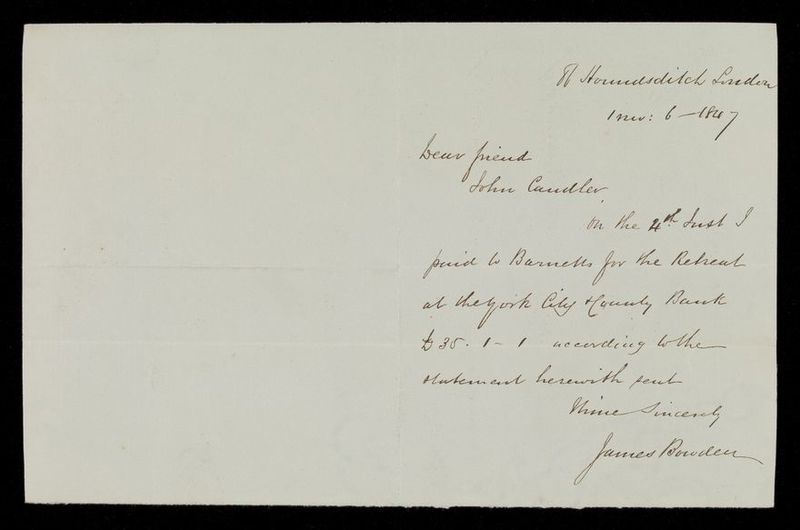 Houndsditch London
6 - 1847
Dear friend
John Candler
On the 4th Inst I
paid to Barnetts for the Retreat
at the York City & County Bank
£35. 1 - 1 according to the
statement herewith sent
Thine Sincerely
James Bowden